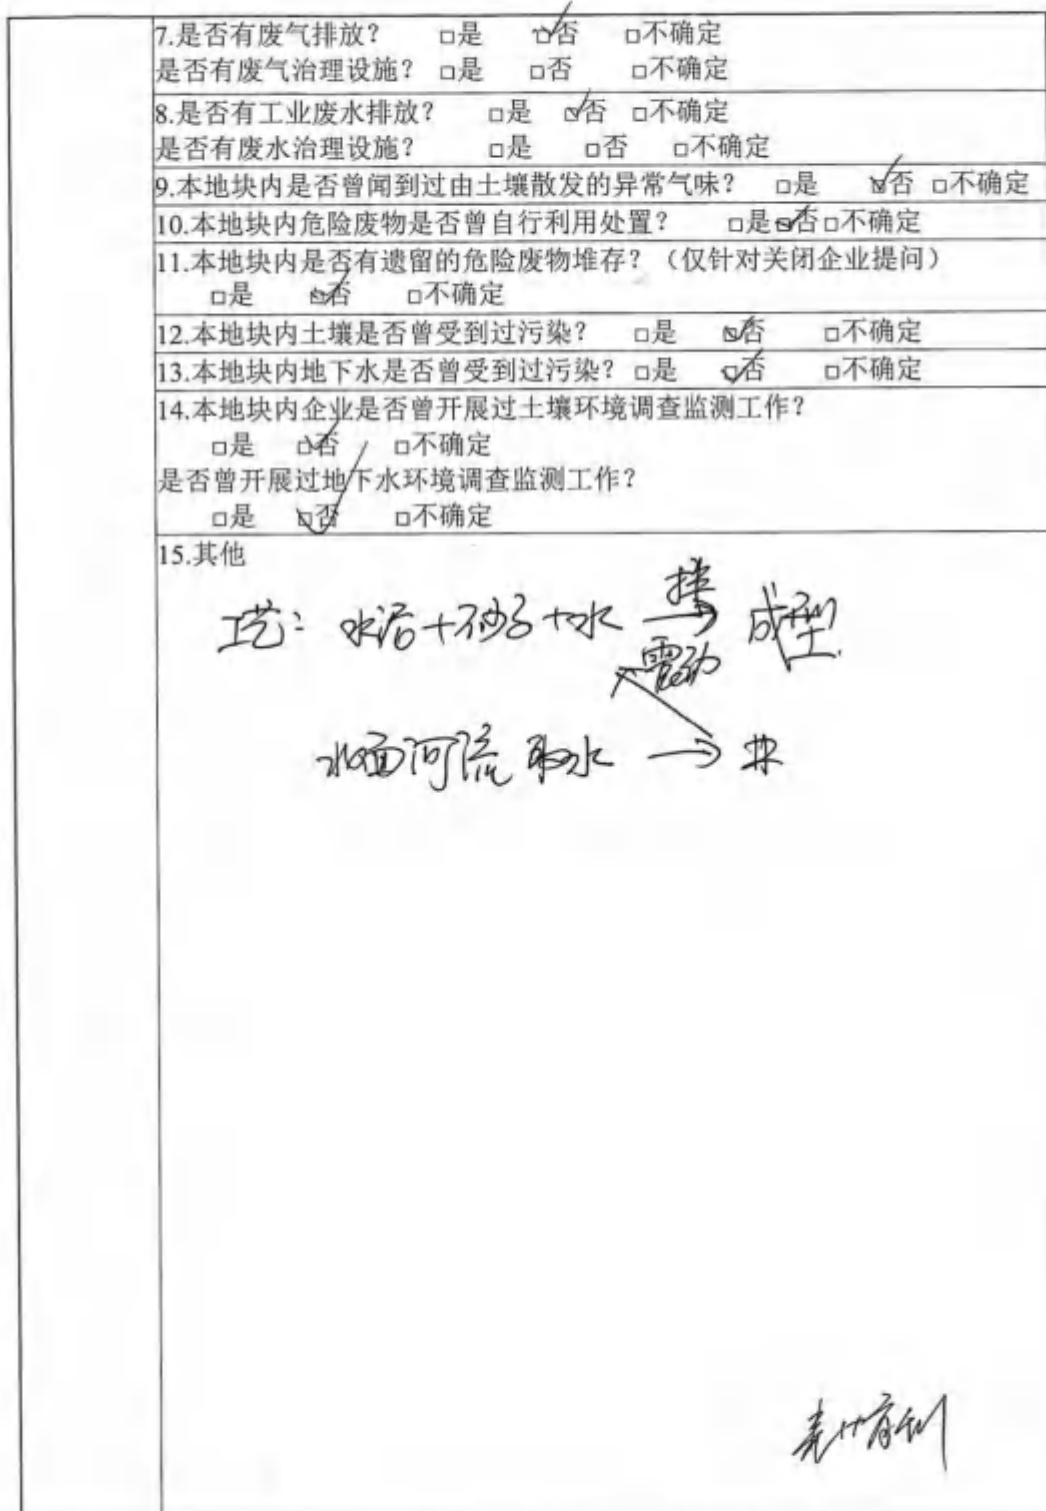 7.是否有废气排放? □是 ☑否 □不确定
是否有废气治理设施? □是 □否 □不确定
8.是否有工业废水排放? □是 ☑否 □不确定
是否有废水治理设施? □是 □否 □不确定
9.本地块内是否曾闻到过由土壤散发的异常气味? □是 ☑否 □不确定
10.本地块内危险废物是否曾自行利用处置? □是 ☑否 □不确定
11.本地块内是否有遗留的危险废物堆存?(仅针对关闭企业提问)
□是 ☑否 □不确定
12.本地块内土壤是否曾受到过污染? □是 ☑否 □不确定
13.本地块内地下水是否曾受到过污染? □是 ☑否 □不确定
14.本地块内企业是否曾开展过土壤环境调查监测工作?
□是 ☑否 □不确定
是否曾开展过地下水环境调查监测工作?
□是 ☑否 □不确定
15.其他
工艺: 水泥+砂子+水 → 成型
震动
河流 取水 → 井